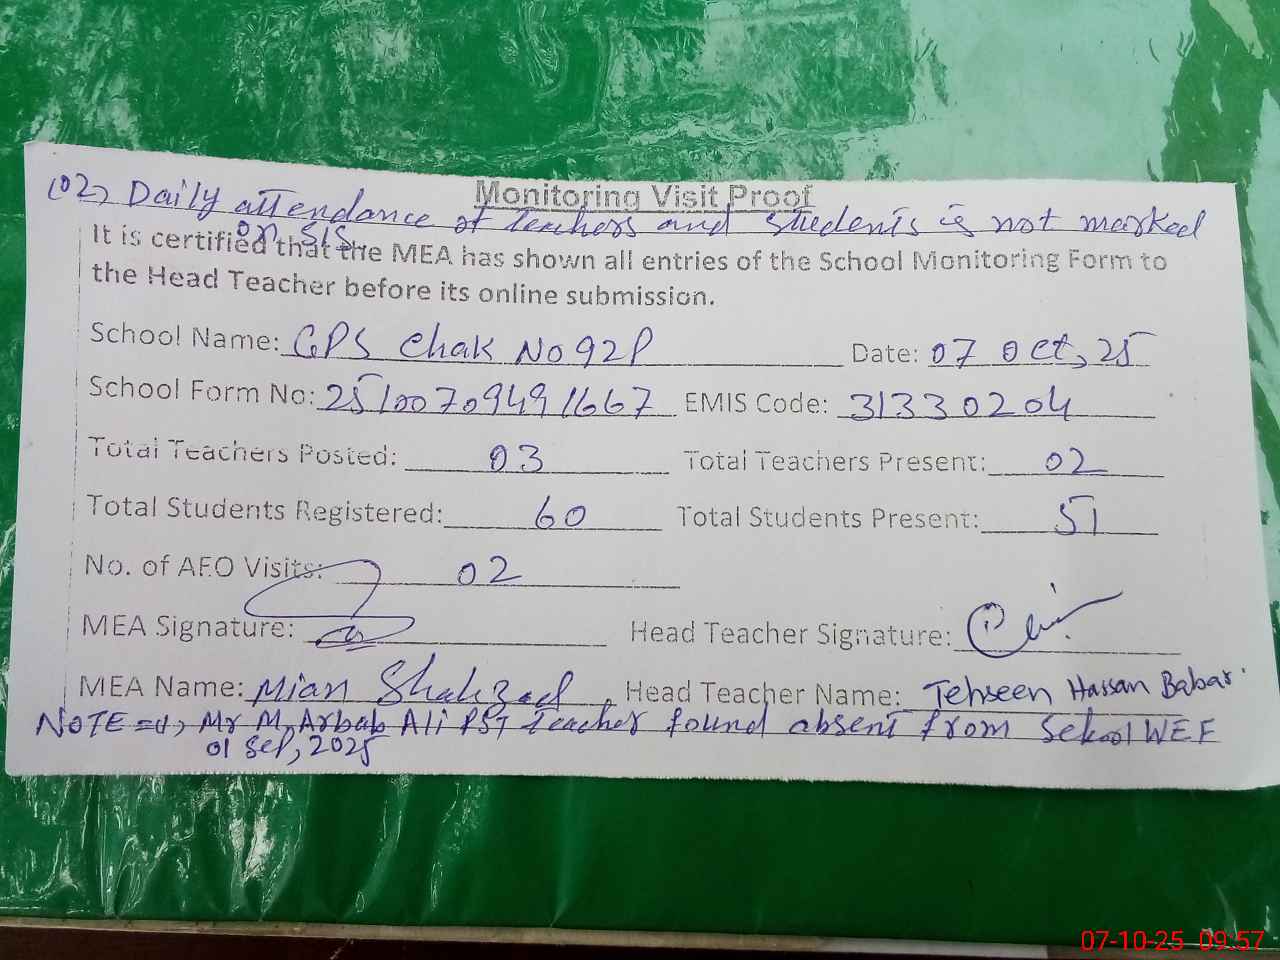 Monitoring Visit Proof
(02) Daily attendance of teachers and students is not marked
on SIS.
It is certified that the MEA has shown all entries of the School Monitoring Form to
the Head Teacher before its online submission.
School Name: GPS Chak No 92P Date: 07 Oct, 25
School Form No: 2510070949 1667 EMIS Code: 31330204
Total Teachers Posted: 03 Total Teachers Present: 02
Total Students Registered: 60 Total Students Present: 51
No. of AEO Visits: 02
MEA Signature: Head Teacher Signature:
MEA Name: Mian Shahzad Head Teacher Name: Tehseen Hassan Babar
NOTE =(1) Mr M. Arbab Ali PST teacher found absent from School WEF
01 Sep, 2025
07-10-25 09:57